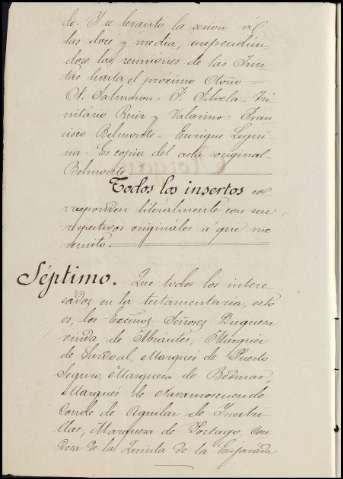 do. Y se levantó la sesion á
las doce y media, suspendién
dose las reuniones de las Jun
tas hasta el próximo Otoño=
N. Salmeron= F. Silvela= Tri
nitario Ruiz y Valarino= Fran
cisco Belmonte= Enrique
Es copia del acta original=
Belmonte
Todos los insertos co
rresponden literalmente con sus
respectivos originales á que me
remito.
Séptimo. Que todos los intere
sados en la testamentaría, esto
es, los Excmos Señores Duquesa
viuda de Abrantes, Marqués
de Sardoal, Marqués de Puerto
Seguro, Marquesa de Bedmar,
Marqués de Navamorcuende
Conde de Aguilar de Inestri
llas, Marquesa de Portago, Con
desa de la Quinta de la Enjarada